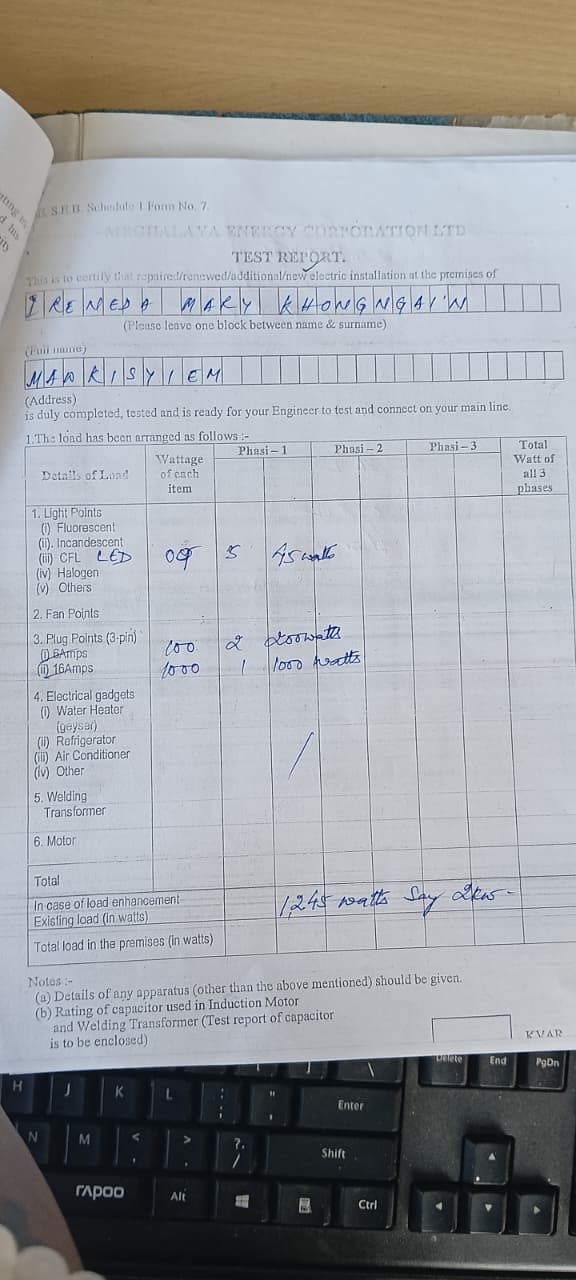 S.E.B. Schedule I Form No. 7.
MEGHALAYA ENERGY CORPORATION LTD
TEST REPORT.
This is to certify that repaired/renewed/additional/new electric installation at the premises of
IRENEDA MARY KHONGNGAI'N
(Please leave one block between name & surname)
(Full name)
MAWKISYIEM
(Address)
is duly completed, tested and is ready for your Engineer to test and connect on your main line.
1.The load has been arranged as follows :-
Details of Load
Wattage of each item
Phasi – 1
Phasi – 2
Phasi – 3
Total Watt of all 3 phases
1. Light Points
(i) Fluorescent
(ii). Incandescent
(iii) CFL LED 09 5 45 watts
(iv) Halogen
(v) Others
2. Fan Points
3. Plug Points (3-pin)
(i) 6Amps 100 2 200 watts
(ii) 16Amps 1000 1 1000 watts
4. Electrical gadgets
(i) Water Heater
(geyser)
(ii) Refrigerator
(iii) Air Conditioner
(iv) Other
5. Welding
Transformer
6. Motor
Total
In case of load enhancement
Existing load (in watts)
1,245 watts Say 2kw-
Total load in the premises (in watts)
Notes :-
(a) Details of any apparatus (other than the above mentioned) should be given.
(b) Rating of capacitor used in Induction Motor
and Welding Transformer (Test report of capacitor
is to be enclosed)
KVAR
Delete End PgDn
H J K L : ; " ' Enter
N M < , > . ? / Shift
rapoo Alt Ctrl